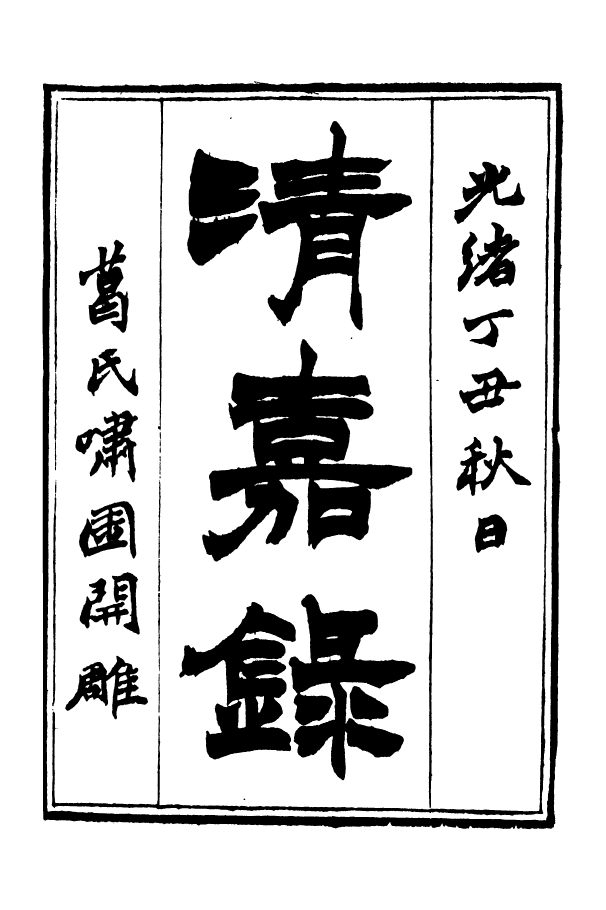 光緒丁丑秋日
清嘉錄
葛氏嘯園開雕